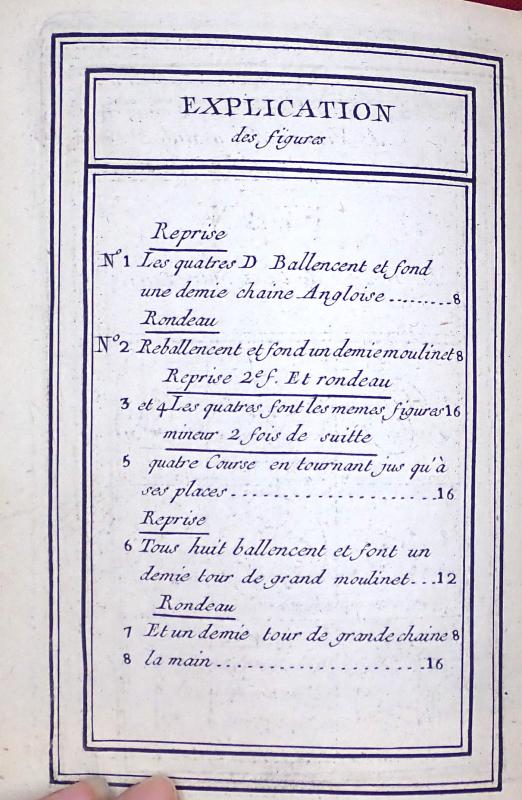 EXPLICATION
des figures
Reprise
N.º 1 Les quatres D Ballencent et fond
une demie chaine Angloise.........8
Rondeau
Nº 2 Reballencent et fond un demie moulinet 8
Reprise 2.e f. Et rondeau
3 et 4 Les quatres font les memes figures 16
mineur 2 fois de suitte
5 quatre Course en tournant jus qu'à
ses places.....................16
Reprise
6 Tous huit ballencent et font un
demie tour de grand moulinet...12
Rondeau
7 Et un demie tour de grande chaine 8
8 la main.....................16